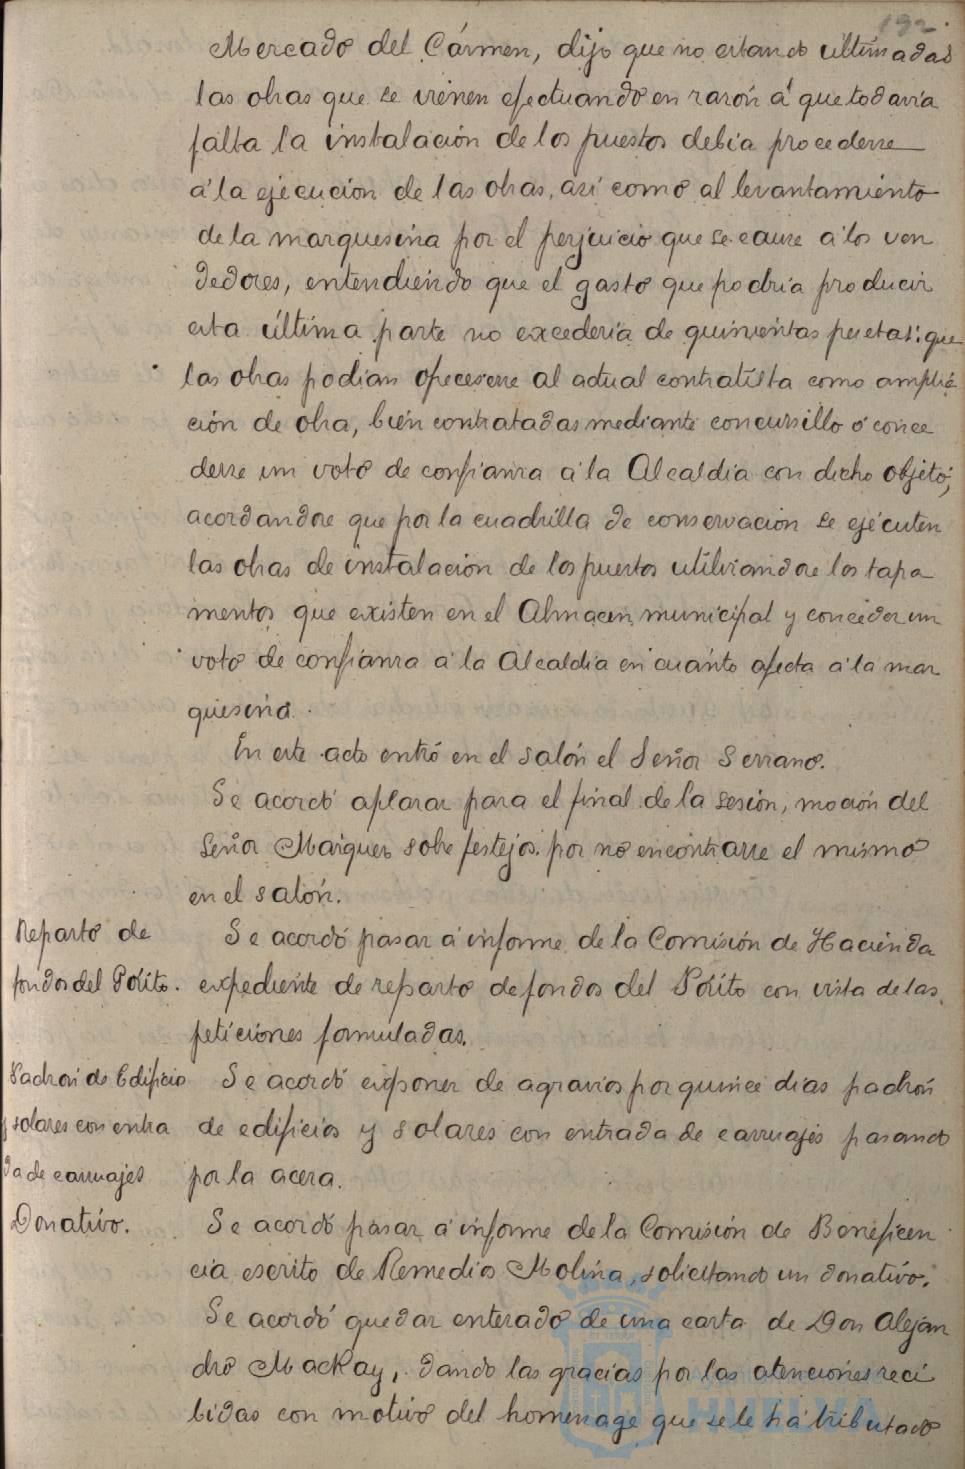 192
Mercado del Cármen, dijo que no estando últimadas
las obras que se vienen efectuando en razón á que todavía
falta la instalación de los puestos debia procederse
á la ejecución de las obras, asi como al levantamiento
de la marquesina por el perjuicio que se cause a los ven
dedores, entendiendo que el gasto que podria producir
esta última parte no excederia de quinientas pesetas: que
las obras podian ofrecerse al actual contratista como amplia
ción de obra, bién contratadas mediante concursillo ó conce
derse un voto de confianza a la Alcaldia con dicho objeto,
acordandose que por la cuadrilla de conservación se ejecuten
las obras de instalación de los puestos utilizandose los tapa
mentos que existen en el Almacen municipal y conceder un
voto de confianza á la Alcaldia en cuánto afecta á la mar
quesina.
En este acto entró en el salón el Señor Serrano.
Se acordó aplazar para el final de la sesión, moción del
Señor Márquez sobre festejos por no encontrarse el mismo
en el salón.
Reparto de
fondos del Pósito.
Se acordó pasar á informe de la Comisión de Hacienda
expediente de reparto de fondos del Pósito con vista de las
peticiones formuladas.
Padrón de Edificio
y solares con entra
da de carruajes
Se acordó exponer de agravios por quince dias padrón
de edificios y solares con entrada de carruajes pasando
por la acera.
Donativo.
Se acordó pasar á informe de la Comisión de Beneficen
cia escrito de Remedios Molina, solicitando un donativo.
Se acordó quedar enterado de una carta de Don Alejan
dro Mackay, dando las gracias por las atenciones reci
bidas con motivo del homenage que se le há tributado
HUELVA